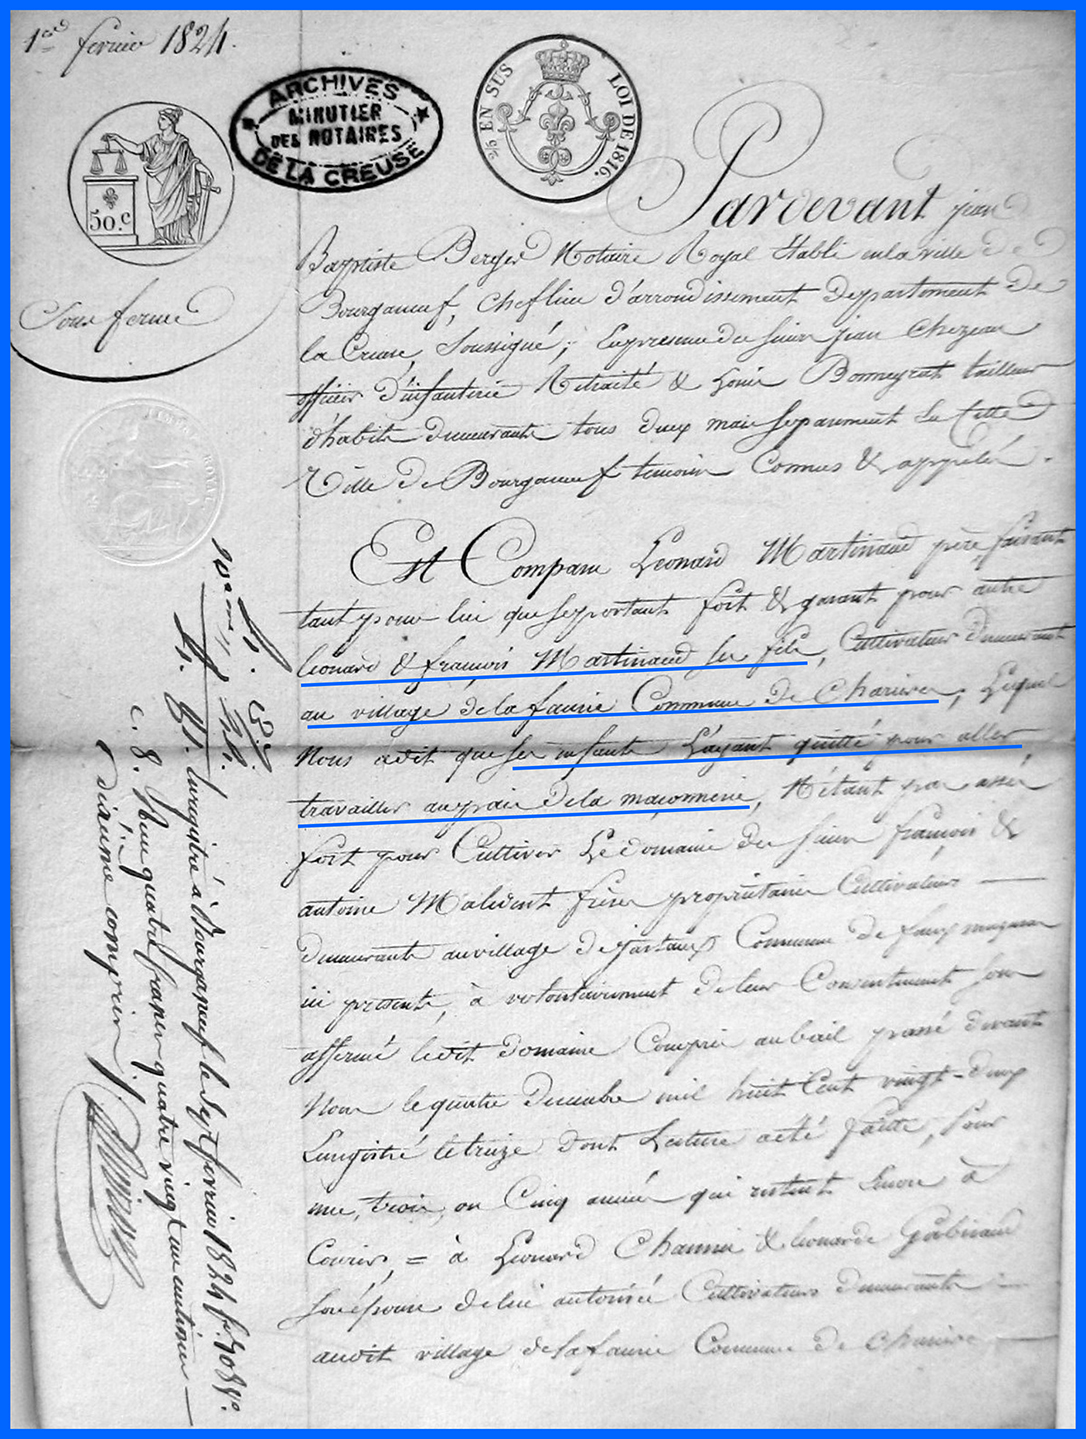 1er fevrier 1824.
ARCHIVES
MINUTIER
DES NOTAIRES
DE LA CREUSE
EN SUS
LOI DE 1816.
50.c
Sous ferme
Pardevant jean
Baptiste Berger Notaire Royal Etabli en la ville de
Bourganeuf, Chef lieu d'arrondissement Departement De
la Creuse, Soussigné, En presence du Sieur jean Chezeau
officier D'infanterie Retraité & Louis Bonneyrat tailleur
d'habits demeurants tous deux mais separement En Cette
Ville De Bourganeuf temoins Connus & appelés.
Est Comparu Léonard Martinaud père faisant
tant pour lui que Se portant fort & garant pour autre
léonard & françois Martinaud Ses fils, Cultivateurs Demeurant
au village de la faurie Commune De Charière, Lequel
Nous a dit que Ses enfants L'ayant quitté pour aller
travailler au païs De la maçonnerie, N'étant pas assés
fort pour Cultiver Le domaine des Sieurs françois &
antoine Malivert frères propriétaires Cultivateurs
Demeurants au village de jartaux Commune De faux mazuras
ici presents, à volontairement De leur Consentement Sous
affermé ledit Domaine Compris au bail passé devant
Nous le quatre Decembre mil huit Cent vingt-deux
Enregistré le treize Dont Lecture a été faite, Pour
une, trois, ou Cinq années qui restent Encore à
Courir, = à Léonard Chaumeix & léonarde Gabiraud
Son épouse de lui autorisée Cultivateurs Demeurants
audit village de la faurie Commune De Charière
Enregistré à Bourganeuf le Sept fevrier 1824 f. 90 R°
C. 8. Reçu quatre francs quatre vingt un centimes
dixième compris.